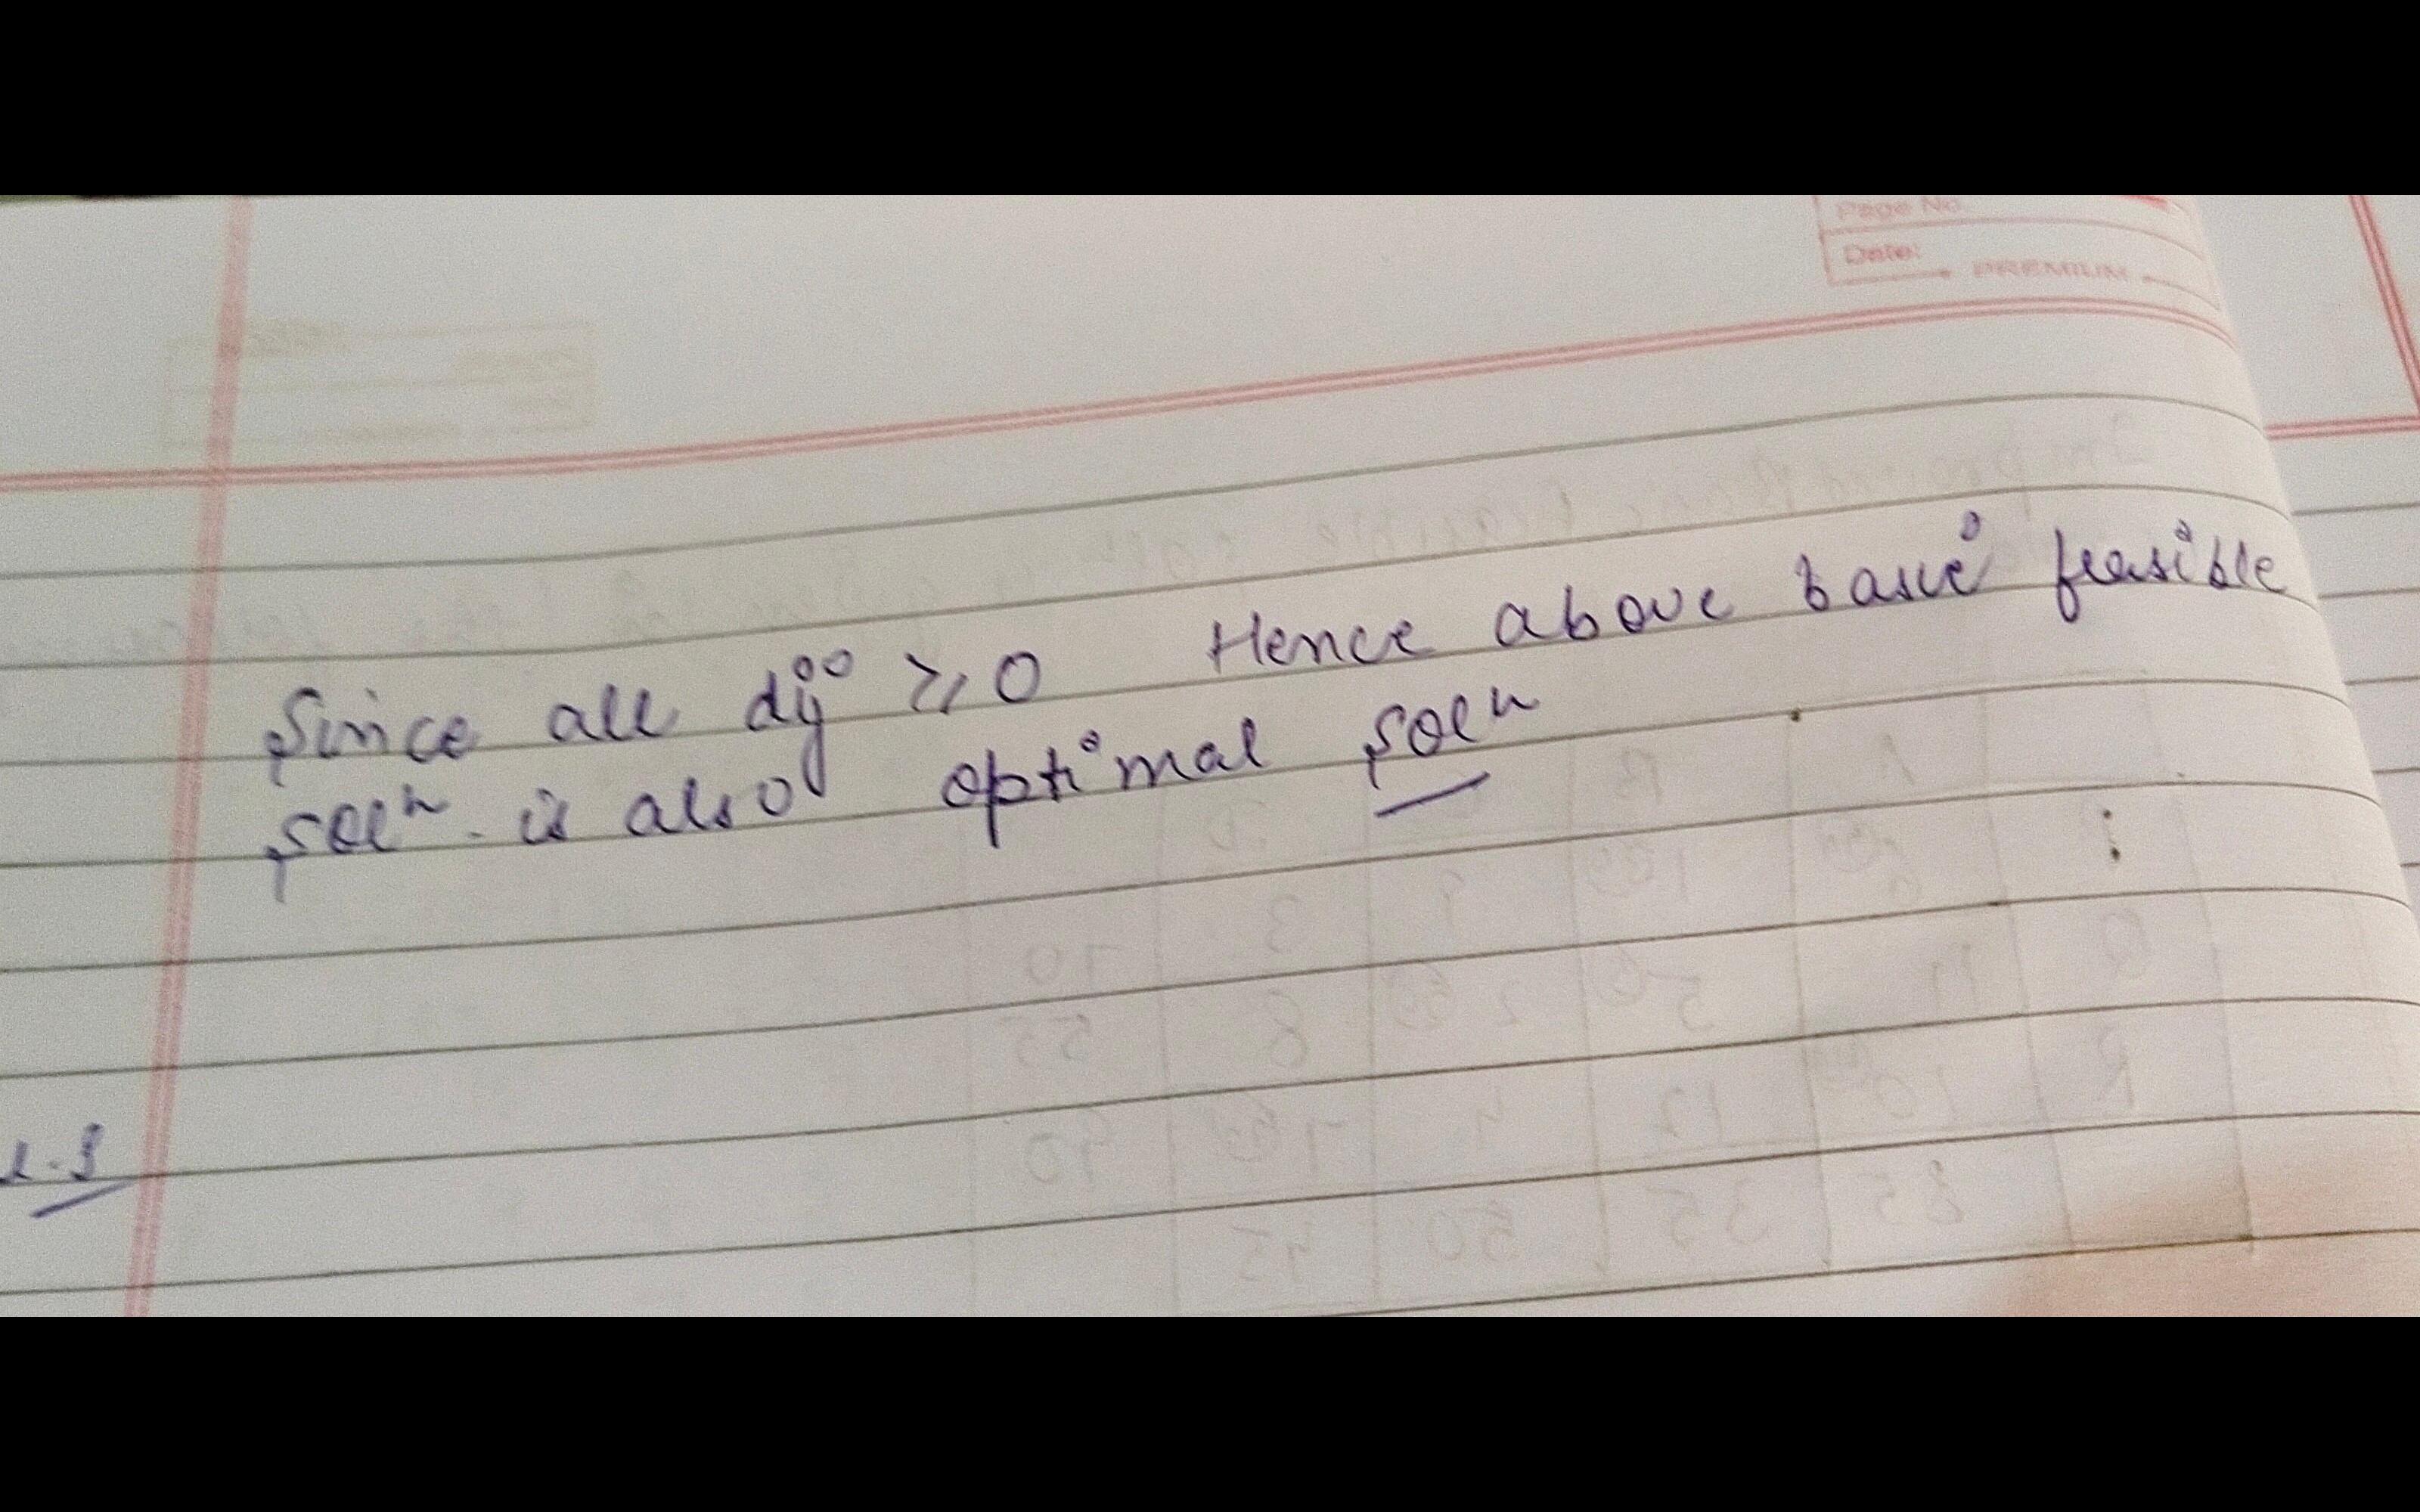 Page No.
Date:
PREMIUM
Since all dij ≥ 0 Hence above basic feasible
solⁿ. is also optimal solⁿ